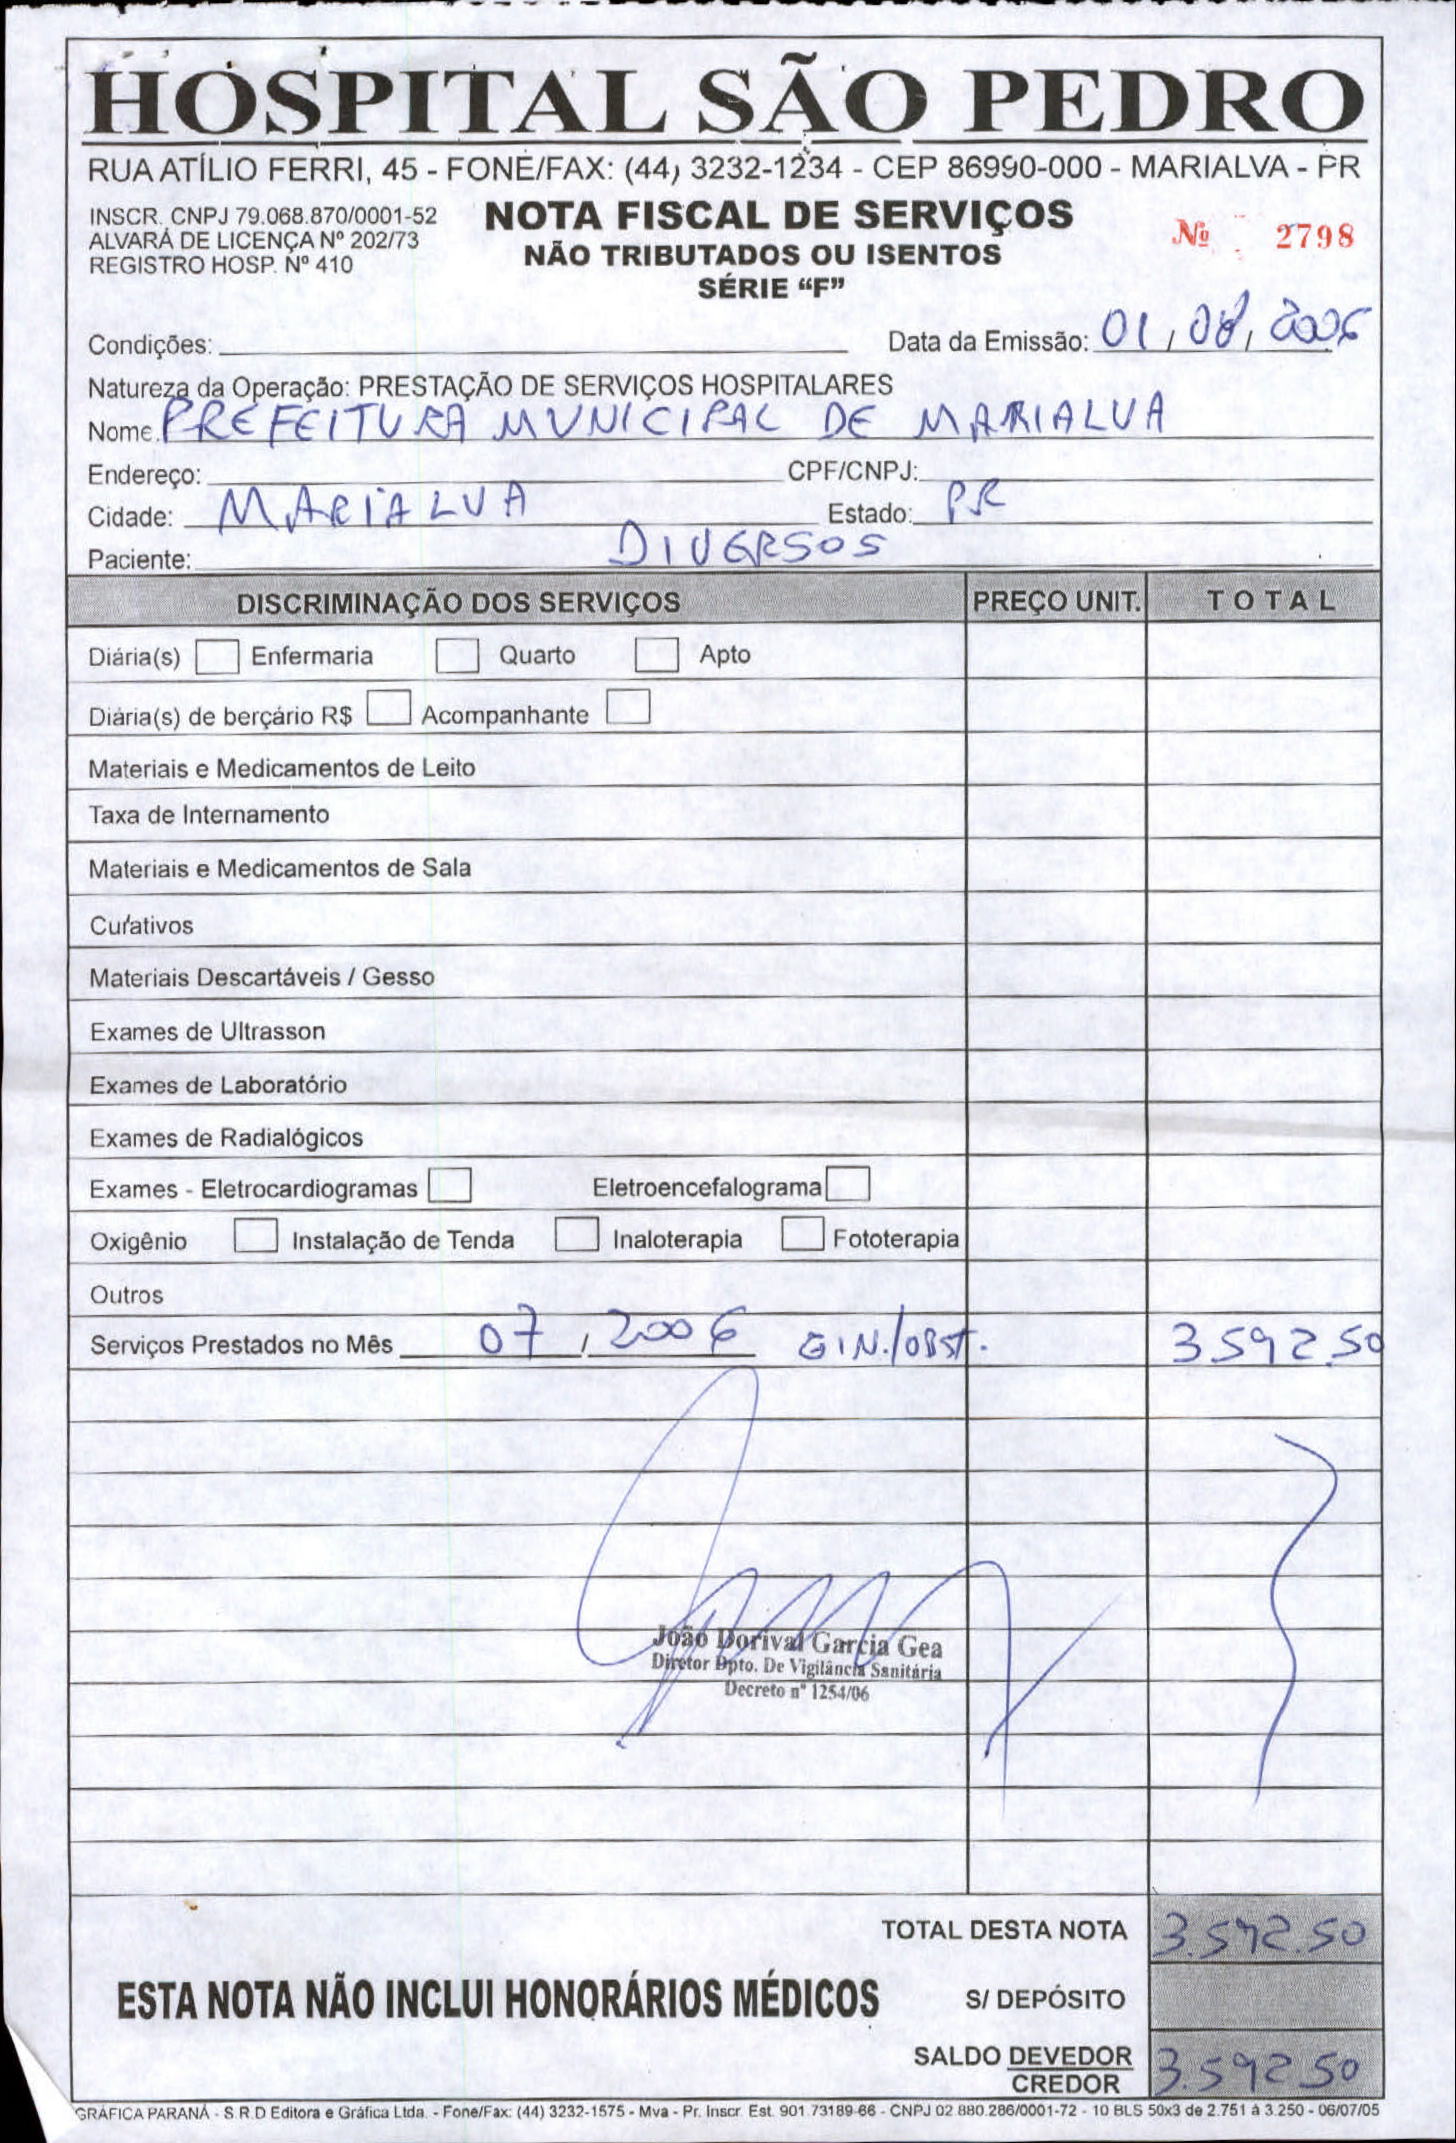 HOSPITAL SÃO PEDRO
RUA ATÍLIO FERRI, 45 - FONE/FAX: (44) 3232-1234 - CEP 86990-000 - MARIALVA - PR
INSCR. CNPJ 79.068.870/0001-52
ALVARÁ DE LICENÇA Nº 202/73
REGISTRO HOSP. Nº 410
NOTA FISCAL DE SERVIÇOS
NÃO TRIBUTADOS OU ISENTOS
SÉRIE “F”
Nº 2798
Condições: Data da Emissão: 01/08/2006
Natureza da Operação: PRESTAÇÃO DE SERVIÇOS HOSPITALARES
Nome PREFEITURA MUNICIPAL DE MARIALVA
Endereço: CPF/CNPJ:
Cidade: MARIALVA Estado: PR
Paciente: DIVERSOS
DISCRIMINAÇÃO DOS SERVIÇOS PREÇO UNIT. TOTAL
Diária(s) Enfermaria Quarto Apto
Diária(s) de berçário R$ Acompanhante
Materiais e Medicamentos de Leito
Taxa de Internamento
Materiais e Medicamentos de Sala
Curativos
Materiais Descartáveis / Gesso
Exames de Ultrasson
Exames de Laboratório
Exames de Radialógicos
Exames - Eletrocardiogramas Eletroencefalograma
Oxigênio Instalação de Tenda Inaloterapia Fototerapia
Outros
Serviços Prestados no Mês 07/2006 GIN./OBST. 3.592,50
João Dorival Garcia Gea
Diretor Dpto. De Vigilância Sanitária
Decreto nº 1254/06
TOTAL DESTA NOTA 3.592.50
ESTA NOTA NÃO INCLUI HONORÁRIOS MÉDICOS
S/ DEPÓSITO
SALDO DEVEDOR 3.592.50
CREDOR
GRÁFICA PARANÁ - S.R.D Editora e Gráfica Ltda. - Fone/Fax: (44) 3232-1575 - Mva - Pr. Inscr. Est. 901.73189-66 - CNPJ 02.880.286/0001-72 - 10 BLS 50x3 de 2.751 à 3.250 - 06/07/05